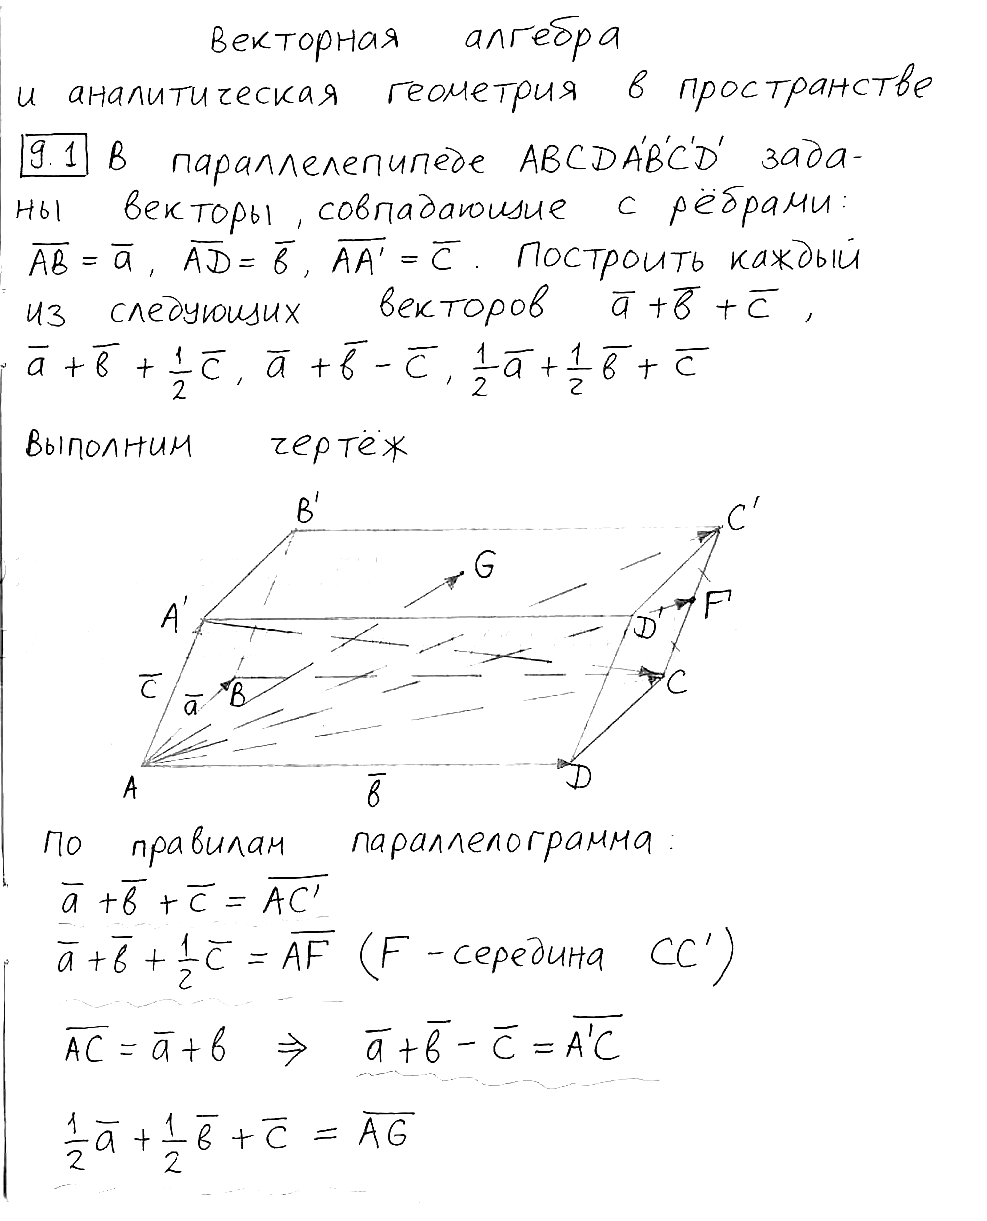 Векторная алгебра
и аналитическая геометрия в пространстве
9.1 В параллелепипеде ABCDA'B'C'D' зада-
ны векторы, совпадающие с рёбрами:
A̅B̅ = a̅, A̅D̅ = в̅, A̅A̅'̅ = c̅. Построить каждый
из следующих векторов a̅ + в̅ + c̅,
a̅ + в̅ + 1/2 c̅, a̅ + в̅ − c̅, 1/2 a̅ + 1/2 в̅ + c̅
Выполним чертёж
B'
C'
G
A'
D'
F
c̅
a̅
B
C
A
в̅
D
По правилам параллелограмма:
a̅ + в̅ + c̅ = A̅C̅'̅
a̅ + в̅ + 1/2 c̅ = A̅F̅ (F - середина CC')
A̅C̅ = a̅ + в ⇒ a̅ + в̅ − c̅ = A̅'̅C̅
1/2 a̅ + 1/2 в̅ + c̅ = A̅G̅